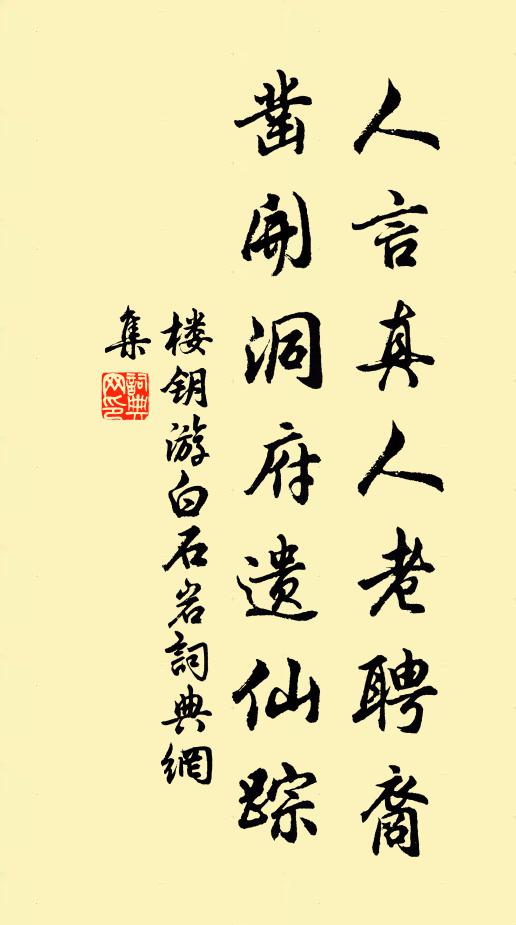 人言真人老聘裔
凿开洞府遗仙踪
楼钥游白石岩詞典網
集
詞典
网印